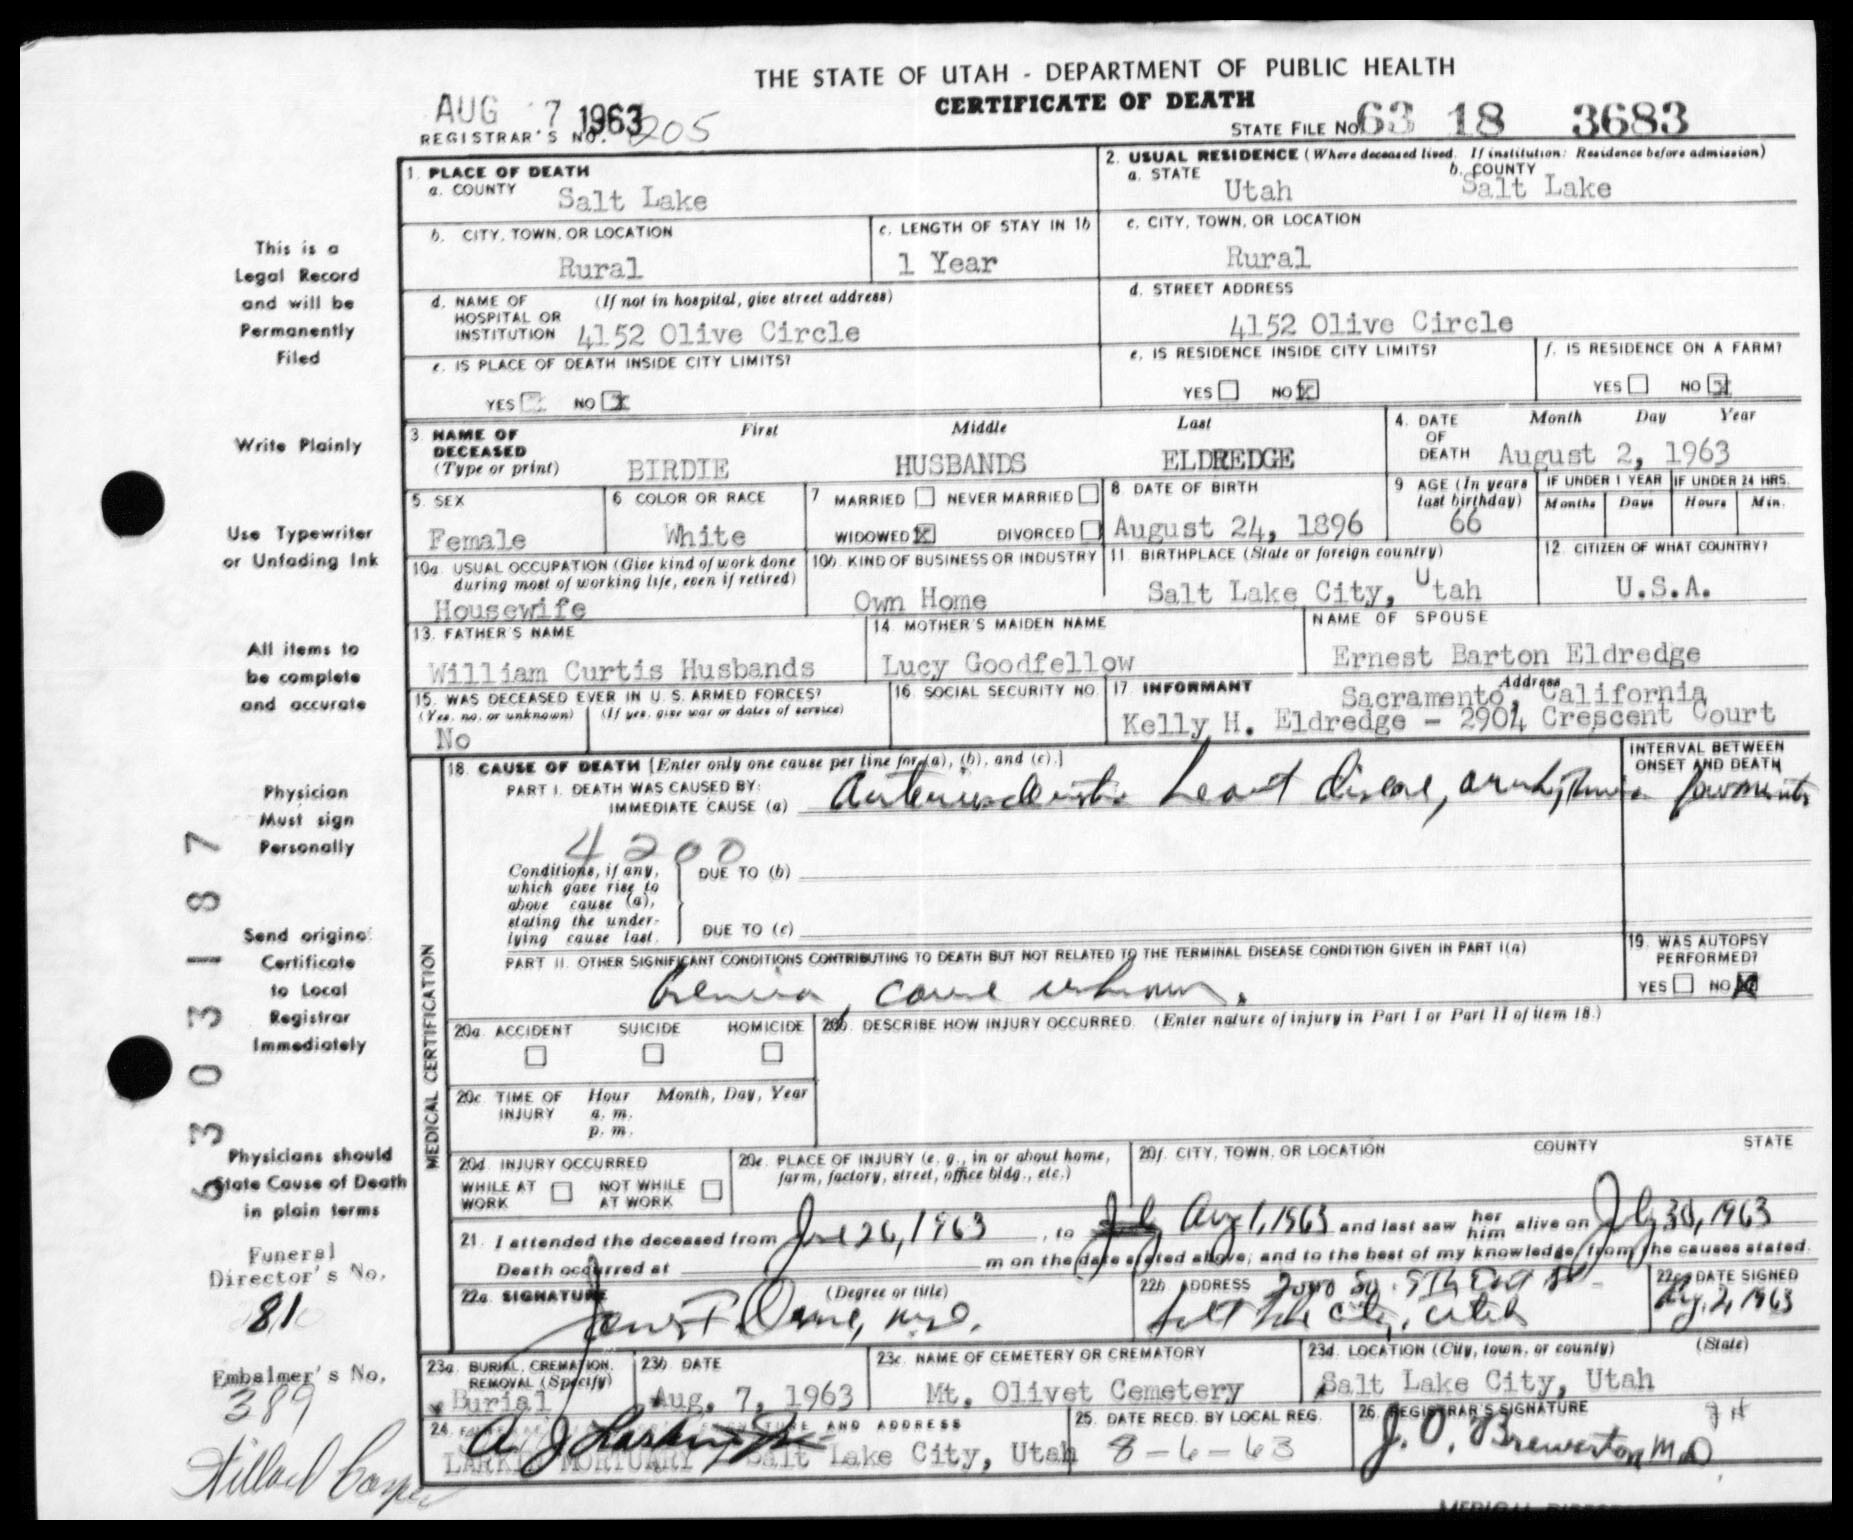 THE STATE OF UTAH - DEPARTMENT OF PUBLIC HEALTH
CERTIFICATE OF DEATH
AUG 7 1963
REGISTRAR'S NO. 1205
STATE FILE NO. 63 18 3683
1. PLACE OF DEATH
a. COUNTY Salt Lake
2. USUAL RESIDENCE (Where deceased lived. If institution: Residence before admission)
a. STATE Utah b. COUNTY Salt Lake
b. CITY, TOWN, OR LOCATION Rural
c. LENGTH OF STAY IN 1b 1 Year
c. CITY, TOWN, OR LOCATION Rural
d. NAME OF HOSPITAL OR INSTITUTION (If not in hospital, give street address) 4152 Olive Circle
d. STREET ADDRESS 4152 Olive Circle
e. IS PLACE OF DEATH INSIDE CITY LIMITS?
YES NO X
e. IS RESIDENCE INSIDE CITY LIMITS?
YES NO X
f. IS RESIDENCE ON A FARM?
YES NO X
3. NAME OF DECEASED (Type or print)
First Middle Last
BIRDIE HUSBANDS ELDREDGE
4. DATE OF DEATH Month Day Year
August 2, 1963
5. SEX Female
6 COLOR OR RACE White
7 MARRIED NEVER MARRIED
WIDOWED X DIVORCED
8 DATE OF BIRTH August 24, 1896
9 AGE (In years last birthday) 66
IF UNDER 1 YEAR Months Days
IF UNDER 24 HRS. Hours Min.
10a. USUAL OCCUPATION (Give kind of work done during most of working life, even if retired)
Housewife
10b. KIND OF BUSINESS OR INDUSTRY
Own Home
11. BIRTHPLACE (State or foreign country)
Salt Lake City, Utah
12. CITIZEN OF WHAT COUNTRY?
U.S.A.
13. FATHER'S NAME
William Curtis Husbands
14. MOTHER'S MAIDEN NAME
Lucy Goodfellow
NAME OF SPOUSE
Ernest Barton Eldredge
15. WAS DECEASED EVER IN U.S. ARMED FORCES?
(Yes, no, or unknown) (If yes, give war or dates of service)
No
16. SOCIAL SECURITY NO.
17. INFORMANT Address
Sacramento, California
Kelly H. Eldredge - 2904 Crescent Court
MEDICAL CERTIFICATION
18. CAUSE OF DEATH [Enter only one cause per line for (a), (b), and (c).]
INTERVAL BETWEEN ONSET AND DEATH
PART I. DEATH WAS CAUSED BY:
IMMEDIATE CAUSE (a) Arteriosclerotic heart disease, arrhythmia few minutes
4200
Conditions, if any, which gave rise to above cause (a), stating the underlying cause last.
DUE TO (b)
DUE TO (c)
PART II. OTHER SIGNIFICANT CONDITIONS CONTRIBUTING TO DEATH BUT NOT RELATED TO THE TERMINAL DISEASE CONDITION GIVEN IN PART I(a)
cause unknown.
19. WAS AUTOPSY PERFORMED?
YES NO X
20a. ACCIDENT SUICIDE HOMICIDE
20b. DESCRIBE HOW INJURY OCCURRED. (Enter nature of injury in Part I or Part II of item 18.)
20c. TIME OF INJURY Hour Month, Day, Year
a. m.
p. m.
20d. INJURY OCCURRED
WHILE AT WORK NOT WHILE AT WORK
20e. PLACE OF INJURY (e. g., in or about home, farm, factory, street, office bldg., etc.)
20f. CITY, TOWN, OR LOCATION COUNTY STATE
21. I attended the deceased from June 26, 1963, to July Aug 1, 1963 and last saw her him alive on July 30, 1963
Death occurred at m on the date stated above; and to the best of my knowledge, from the causes stated.
22a. SIGNATURE (Degree or title)
M.D.
22b. ADDRESS So. 9th East St
Salt Lake City, Utah
22c. DATE SIGNED
Aug. 2, 1963
23a. BURIAL, CREMATION, REMOVAL (Specify)
Burial
23b. DATE
Aug. 7, 1963
23c. NAME OF CEMETERY OR CREMATORY
Mt. Olivet Cemetery
23d. LOCATION (City, town, or county) (State)
Salt Lake City, Utah
24. SIGNATURE AND ADDRESS
A J Larkin Jr
LARKIN MORTUARY Salt Lake City, Utah
25. DATE RECD. BY LOCAL REG.
8-6-63
26. REGISTRAR'S SIGNATURE
J. O. Brewerton M.D.
This is a
Legal Record
and will be
Permanently
Filed
Write Plainly
Use Typewriter
or Unfading Ink
All items to
be complete
and accurate
Physician
Must sign
Personally
Send original
Certificate
to Local
Registrar
Immediately
Physicians should
State Cause of Death
in plain terms
6303187
Funeral
Director's No.
810
Embalmer's No.
389